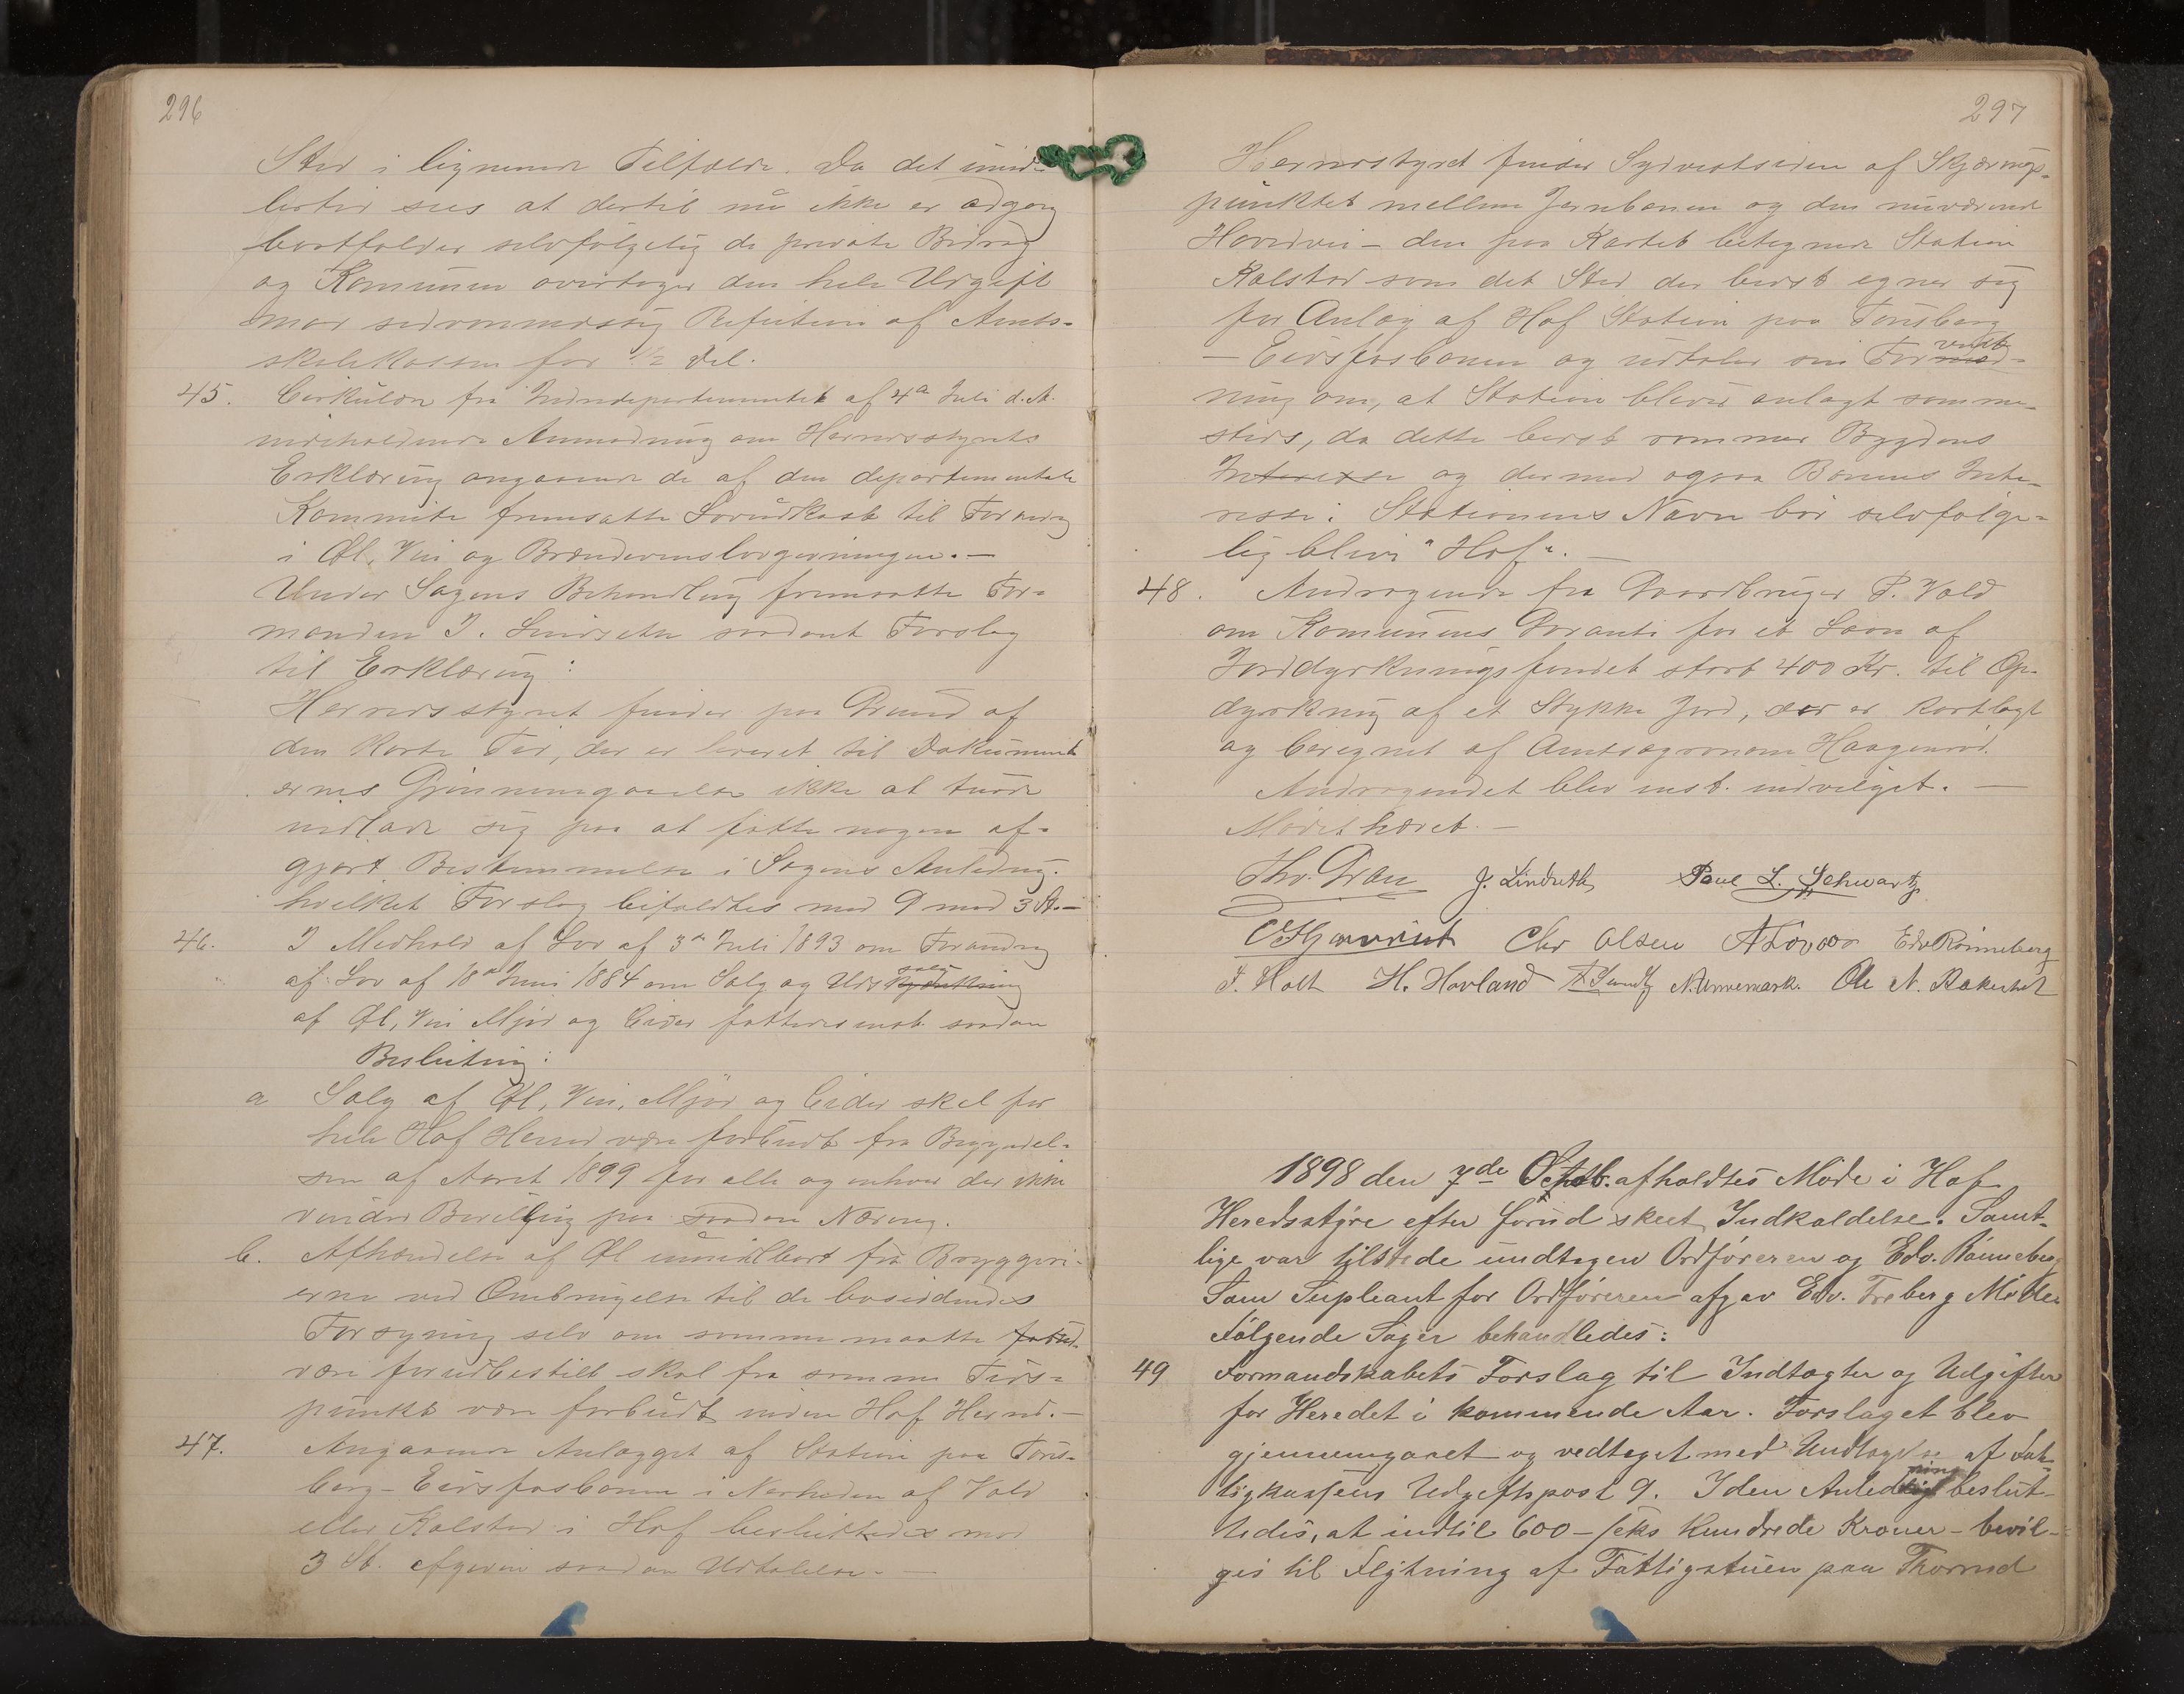 296
Sted i lignende Tilfælde. Da det imid-
lertid sees at dertil nu ikke er adgang
bortfalder selvfølgelig de private Bidrag
og Komunen overtager den hele Udgift
mod sedvanmessig Refution af Amts-
skolekassen for 1/2 Del.
45. Cirkulær fra Indredepartementet af 4de Juli d. A.
indeholdende Anmodning om Herredsstyrets
Erklæring angaaende de af den departementale
Kommite fremsatte Lovudkast til Forandring
i Øl, Vin og Brændevinslovgivningen. —
Under Sagens Behandling fremsatte For-
manden J. Lindseth saadant Forslag
til Erklæring:
Herredsstyret finder paa Grund af
den korte Tid, der er levnet til Dokument
ernes Gjennemgaaelse ikke at turde
indlade sig paa at fatte nogen af-
gjort Bestemmelse i Sagens Anledning.
hvilket Forslag bifaldtes med 9 mod 3 St. —
46. I Medhold af Lov af 3de Juli 1893 om Forandring
af Lov af 18de Juni 1884 om Salg og Udskjænkning
af Øl, Vin Mjød og Cider fattedes enst. saadan
Beslutning:
a Salg af Øl, Vin, Mjød og Cider skal for
hele Hof Herred være forbudt fra Begyndel-
sen af Aaret 1899 for alle og enhver der ikke
vinder Bevilling paa saadan Næring.
b. Afhændelse af Øl umidlbart fra Bryggeri-
erne ved Ombringelse til de bosiddendes
Forsyning selv om samme maatte forud-
være forudbestilt skal fra samme Tids-
punkt være forbudt inden Hof Herred. —
47. Angaaende Anlægget af Station paa Tøns-
berg-Eidsfosbanen i Nærheden af Vold
eller Kalstad i Hof besluttedes mod
3 St. afgiven saadan Udtalelse. —
297
Herredsstyret finder Sydvestsiden af Skjærings-
punktet mellem Jernbanen og den nuværende
Hovedvei — den paa Kartet betegnede Station
Kalstad som det Sted der bedst egner sig
for Anlæg af Hof Station paa Tønsberg
— Eidsfosbanen og udtaler sin Forvent-
ning om, at Station bliver anlagt samme-
steds, da dette bedst rammer Bygdens
Interesse og dermed ogsaa Banens Inte-
resse. Stationens Navn bør selvfølge-
lig blive "Hof". —
48. Andragende fra Gaardbruger P. Vold
om Komunens Garanti for et Laan af
Jorddyrkningsfondet stort 400 Kr. til Op-
dyrkning af et Stykke Jord, der er kartlagt
og beregnet af Amtsagronom Haagenrød.
Andragendet blev enst. indvilget. —
Mødet hævet. —
Thv. Gran J. Lindseth Paul L. Schwartz
Chr Olsen Edv Rønneberg
F. Holt H. Hovland F Sundt Ole N.
1898 den 7de Septb. afholdtes Møde i Hof
Heredsstyre efter forud skeet Indkaldelse. Samt-
lige var tilstede undtagen Ordføreren og Edv. Rønneberg
Som Supleant for Ordføreren afgav Edv. Freberg Møde
Følgende Sager behandledes:
49 Formandskabets Forslag til Indtægter og Udgifter
for Heredet i kommende Aar. Forslaget blev
gjennemgaaet og vedtaget med Undtagelse af Fat-
tigkassens Udgiftspost 9. I den Anledning beslut-
tedes, at indtil 600 – seks hundrede Kroner – bevil-
ges til Flytning af Fattigstuen paa Thorrud